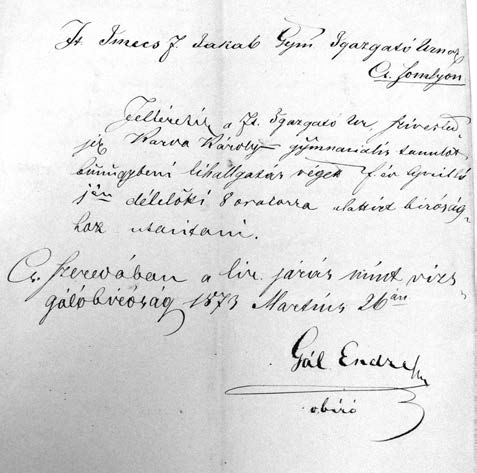 Tt. Imecs F. Jakab Gym Igazgató Urnak
Cs. Somlyón
Felkéretik a Tt. Igazgató Ur, szivesked-
jék Karva Károly gÿmnasialis tanulot
bünügybeni kihallgatás véget f. év April 1ő
jén délelőtti 8 oralorra alattirt biróság-
hoz utasitani.
Cs. Szeredában a kir. járás mint vizs-
gálóbíróság 1873 Martius 26án
Gál Endre
biró